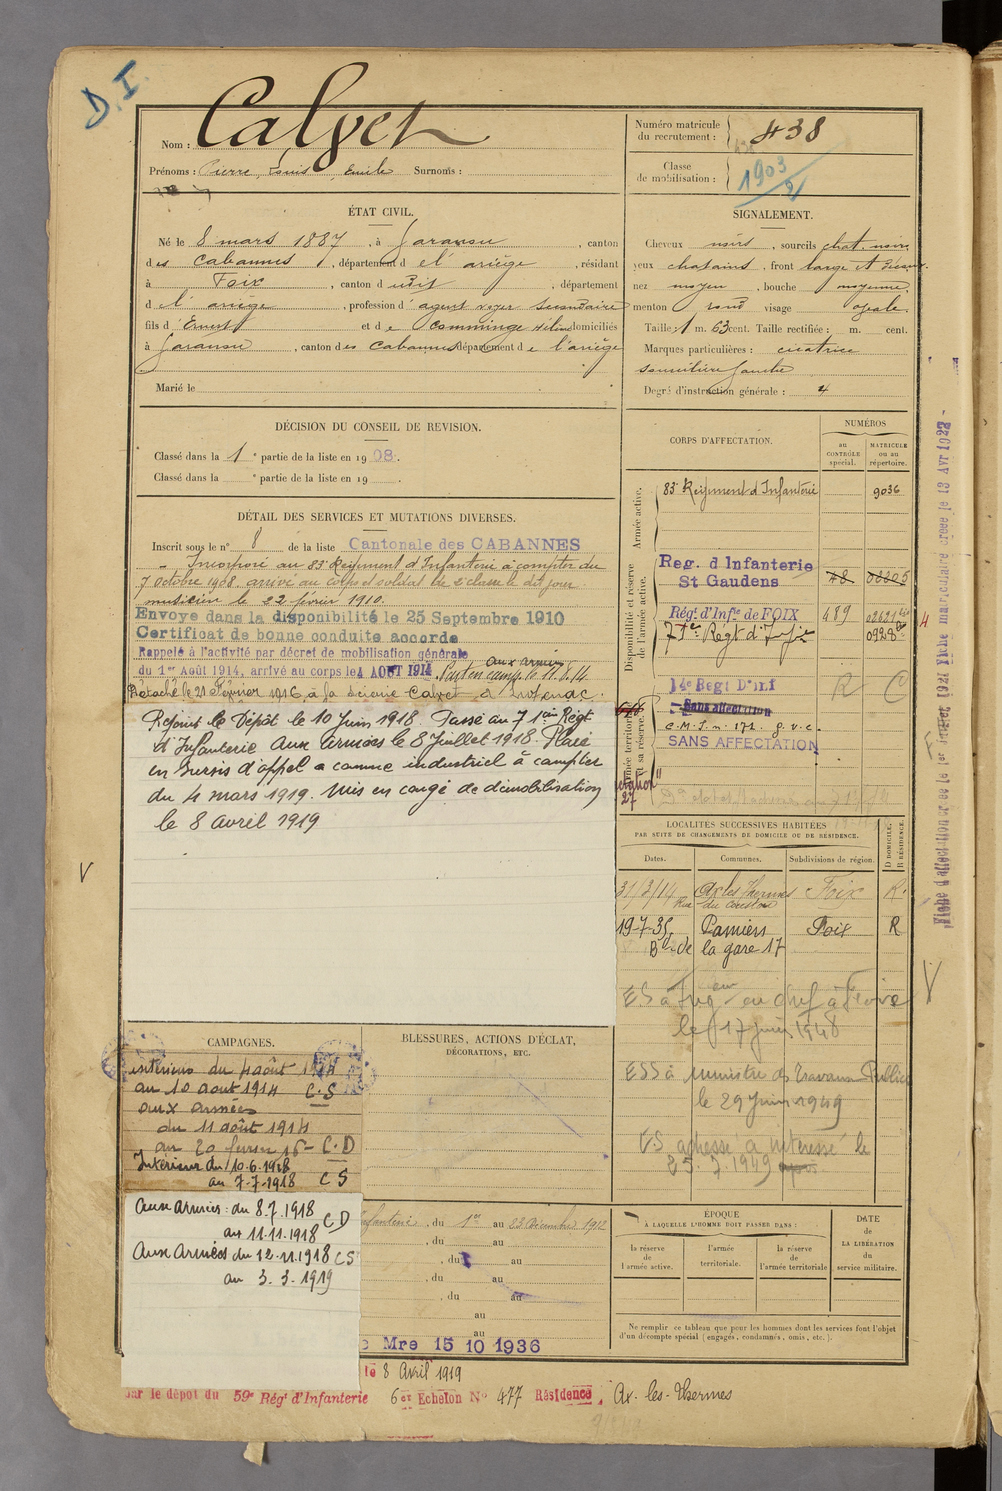 D.I.
Nom : Calvet
Prénoms : Pierre, Louis, Emile Surnoms :
Numéro matricule
du recrutement : 438
Classe
de mobilisation : 1903
ÉTAT CIVIL.
Né le 8 mars 1887, à Garanou, canton
des Cabannes, département de l'ariège, résidant
à Foix, canton d udit, département
d l'ariège, profession d'agent voyer secondaire
fils d'Ernest et de Comminge Hélène domiciliés
à Garanou, canton des Cabannes département de l'ariège
Marié le
SIGNALEMENT.
Cheveux noirs, sourcils chat. noirs
yeux chatains, front large
nez moyen, bouche moyenne,
menton rond visage ovale.
Taille : 1 m. 63 cent. Taille rectifiée : m. cent.
Marques particulières : cicatrice
sourcilière gauche
Degré d'instruction générale : 4
DÉCISION DU CONSEIL DE REVISION.
Classé dans la 1e partie de la liste en 1908.
Classé dans la e partie de la liste en 19 .
DÉTAIL DES SERVICES ET MUTATIONS DIVERSES.
Inscrit sous le n° 8 de la liste Cantonale des CABANNES
Incorporé au 83e Régiment d'Infanterie à compter du
7 octobre 1908. arrivé au corps et soldat de 2e classe le dit jour
musicien le 22 février 1910.
Envoyé dans la disponibilité le 25 Septembre 1910
Certificat de bonne conduite accordé
Rappelé à l'activité par décret de mobilisation générale
du 1er Août 1914, arrivé au corps le 4 AOUT 1914. Parti en camp. aux armées le 11.8.14
Détaché le 21 Février 1916 à la Scierie Calvet à Luzenac.
Rejoint le Dépôt le 10 Juin 1918. Passé au 71ème Régt
d'Infanterie aux armées le 8 Juillet 1918. Placé
en sursis d'appel comme industriel à compter
du 4 mars 1919. Mis en congé de démobilisation
le 8 avril 1919
CORPS D'AFFECTATION.
NUMÉROS
au
CONTRÔLE
spécial.
MATRICULE
ou au
répertoire.
Armée active.
83e Régiment d'Infanterie 9036
Disponibilité et réserve
de l'armée active.
Reg. d Infanterie
St Gaudens 48 08205
Régt d'Infie de FOIX 489
71e Régt d'Infie
14e Regt D'INF R C
Sans affectation
SANS AFFECTATION
LOCALITÉS SUCCESSIVES HABITÉES
PAR SUITE DE CHANGEMENTS DE DOMICILE OU DE RÉSIDENCE.
D DOMICILE.
R RÉSIDENCE.
Dates. Communes. Subdivisions de région.
31/3/14 Ax les Thermes Foix R.
19-7-35 Pamiers Foix R
Bd de la gare 17
le 17 juin 1948
ESS à Ministre des Travaux Publics
le 29 Juin 1949
ES adressé à intéressé le
25.7.1949
CAMPAGNES.
intérieur du 4 août 1914
au 10 aout 1914 C.S
aux armées
du 11 août 1914
au 20 février 16 – C.D
Intérieur du 10-6-1918
au 7-7-1918 C S
Aux armées : du 8.7.1918
au 11.11.1918 C D
Aux armées du 12.11.1918 C S
au 3.3.1919
BLESSURES, ACTIONS D'ÉCLAT,
DÉCORATIONS, ETC.
Infanterie, du 1er au 23 Décembre 1912
, du au
, du au
, du au
, du au
au
au
Mre 15 10 1936
ÉPOQUE
A LAQUELLE L'HOMME DOIT PASSER DANS :
la réserve
de
l'armée active.
l'armée
territoriale.
la réserve
de
l'armée territoriale
DATE
de
LA LIBÉRATION
du
service militaire.
Ne remplir ce tableau que pour les hommes dont les services font l'objet
d'un décompte spécial (engagés, condamnés, omis, etc.).
le 8 Avril 1919
par le dépôt du 59e Régt d'Infanterie 6er Echelon N° 477 Résidence, Ax-les-Thermes